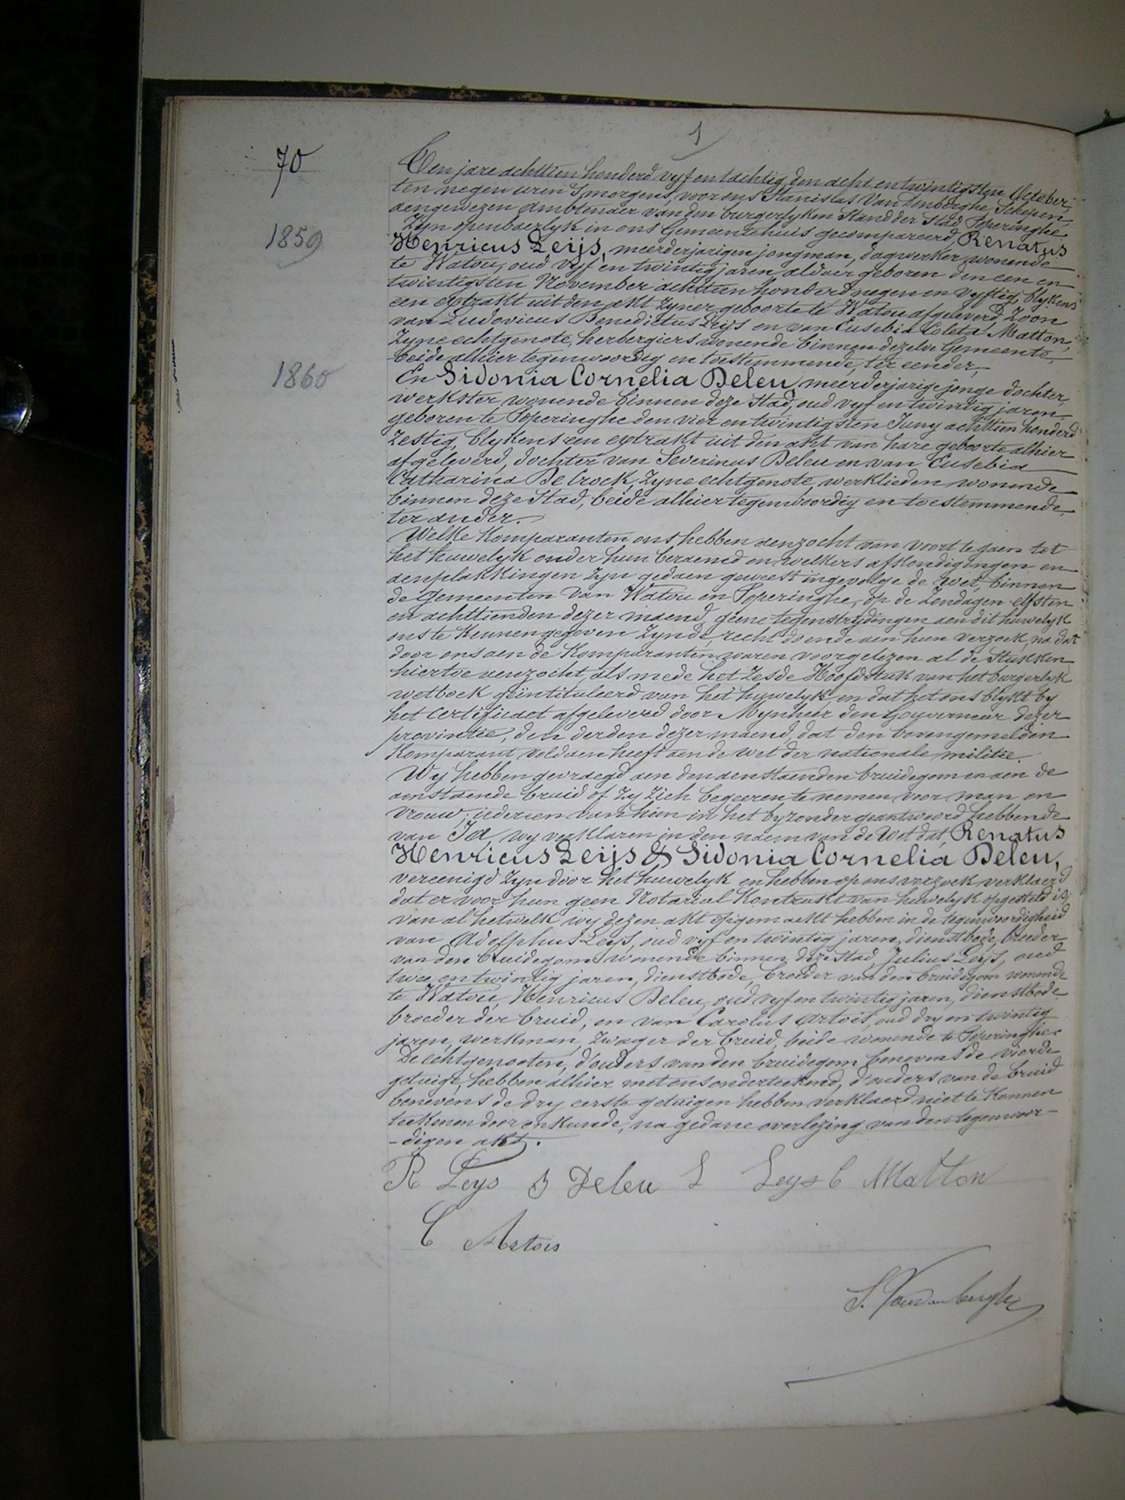 1
70
Den jare achttien honderd vyf en tachtig, den acht en twintigsten October,
ten negen uren 's morgens, voor ons Stanislas Van den berghe, Schepen,
aengewezen Ambtenaer van den burgerlyken Stand der Stad Poperinghe
Zyn openbaerlyk in ons Gemeentehuis gecompareerd, Renatus
1859
Henricus Leijs, meerderjarigen jongman, dagwerker, wonende
te Watou, oud vyf en twintig jaren, aldaer geboren den een en
twintigsten November achttien honderd negen en vyftig, blykens
een extrakt uit den akt zyner geboorte te Watou afgeleverd, Zoon
van Ludovicus Benedictus Leys en van Eusebia Coleta Matton,
Zyne echtgenote, herbergiers wonende binnen dezelve Gemeente,
beide alhier tegenwoordig en toestemmende, ter eender,
1860
En Sidonia Cornelia Deleu, meerderjarige jonge dochter,
werkster, wonende binnen deze Stad, oud vyf en twintig jaren,
geboren te Poperinghe den vier en twintigsten Juny achttien honderd
zestig, blykens een extrakt uit den akt van hare geboorte alhier
afgeleverd, dochter van Severinus Deleu en van Eusebia
Catharina Delrock, Zyne echtgenote, werklieden wonende
binnen deze Stad, beide alhier tegenwoordig en toestemmende,
ter ander.
Welke Komparanten ons hebben aenzocht van voort te gaen tot
het huwelyk onder hun beraemd en welkers afkondigingen en
aenplakkingen zyn gedaen geweest ingevolge de wet, binnen
de Gemeenten van Watou en Poperinghe, op de Zondagen elfsten
en achttienden dezer maend, geene tegenstrydingen aen dit huwelyk
ons te kennen gegeven zynde, recht doende aen hun verzoek, na dat
door ons aen de Komparanten waren voorgelezen al de Stukken
hiertoe verzocht, als mede het Zesde Hoofdstuk van het burgerlyk
wetboek geintituleerd van het huwelyk, en dat het ons blykt by
het Certificaet afgeleverd door Mynheer den Gouverneur dezer
provincie, den derden dezer maend, dat den bovengemelden
Komparant, voldaen heeft aen de wet der nationale militie.
Wy hebben gevraegd aen den aenstaenden bruidegom en aen de
aenstaende bruid of zy zich begeeren te nemen voor man en
vrouw, iedereen van hun in het byzonder geantwoord hebbende
van Ja, wy verklaren in den naem van de Wet dat, Renatus
Henricus Leijs & Sidonia Cornelia Deleu,
vereenigd zyn door het huwelyk en hebben op ons verzoek verklaerd
dat er voor hun geen Notariael Kontrakt van huwelyk opgesteld is,
van al hetwelk wy dezen akt opgemaekt hebben in de tegenwoordigheid
van Adolphus Leys, oud vyf en twintig jaren, dienstbode, broeder
van den bruidegom wonende binnen deze Stad, Julius Leys, oud
twee en twintig jaren, dienstbode, broeder van den bruidegom wonende
te Watou, Henricus Deleu, oud vyf en twintig jaren, dienstbode
broeder der bruid, en van Carolus Artois, oud dry en twintig
jaren, werkman, zwager der bruid, beide wonende te Poperinghe.
De echtgenooten, d'ouders van den bruidegom benevens de vierde
getuige, hebben alhier met ons onderteekend, d'ouders van de bruid
benevens de dry eerste getuigen hebben verklaerd niet te konnen
teekenen door onkunde, na gedane overlezing van den tegenwoor-
-digen akt.
R Leys S Deleu L Leys C Matton
C Artois
S. Vandenberghe